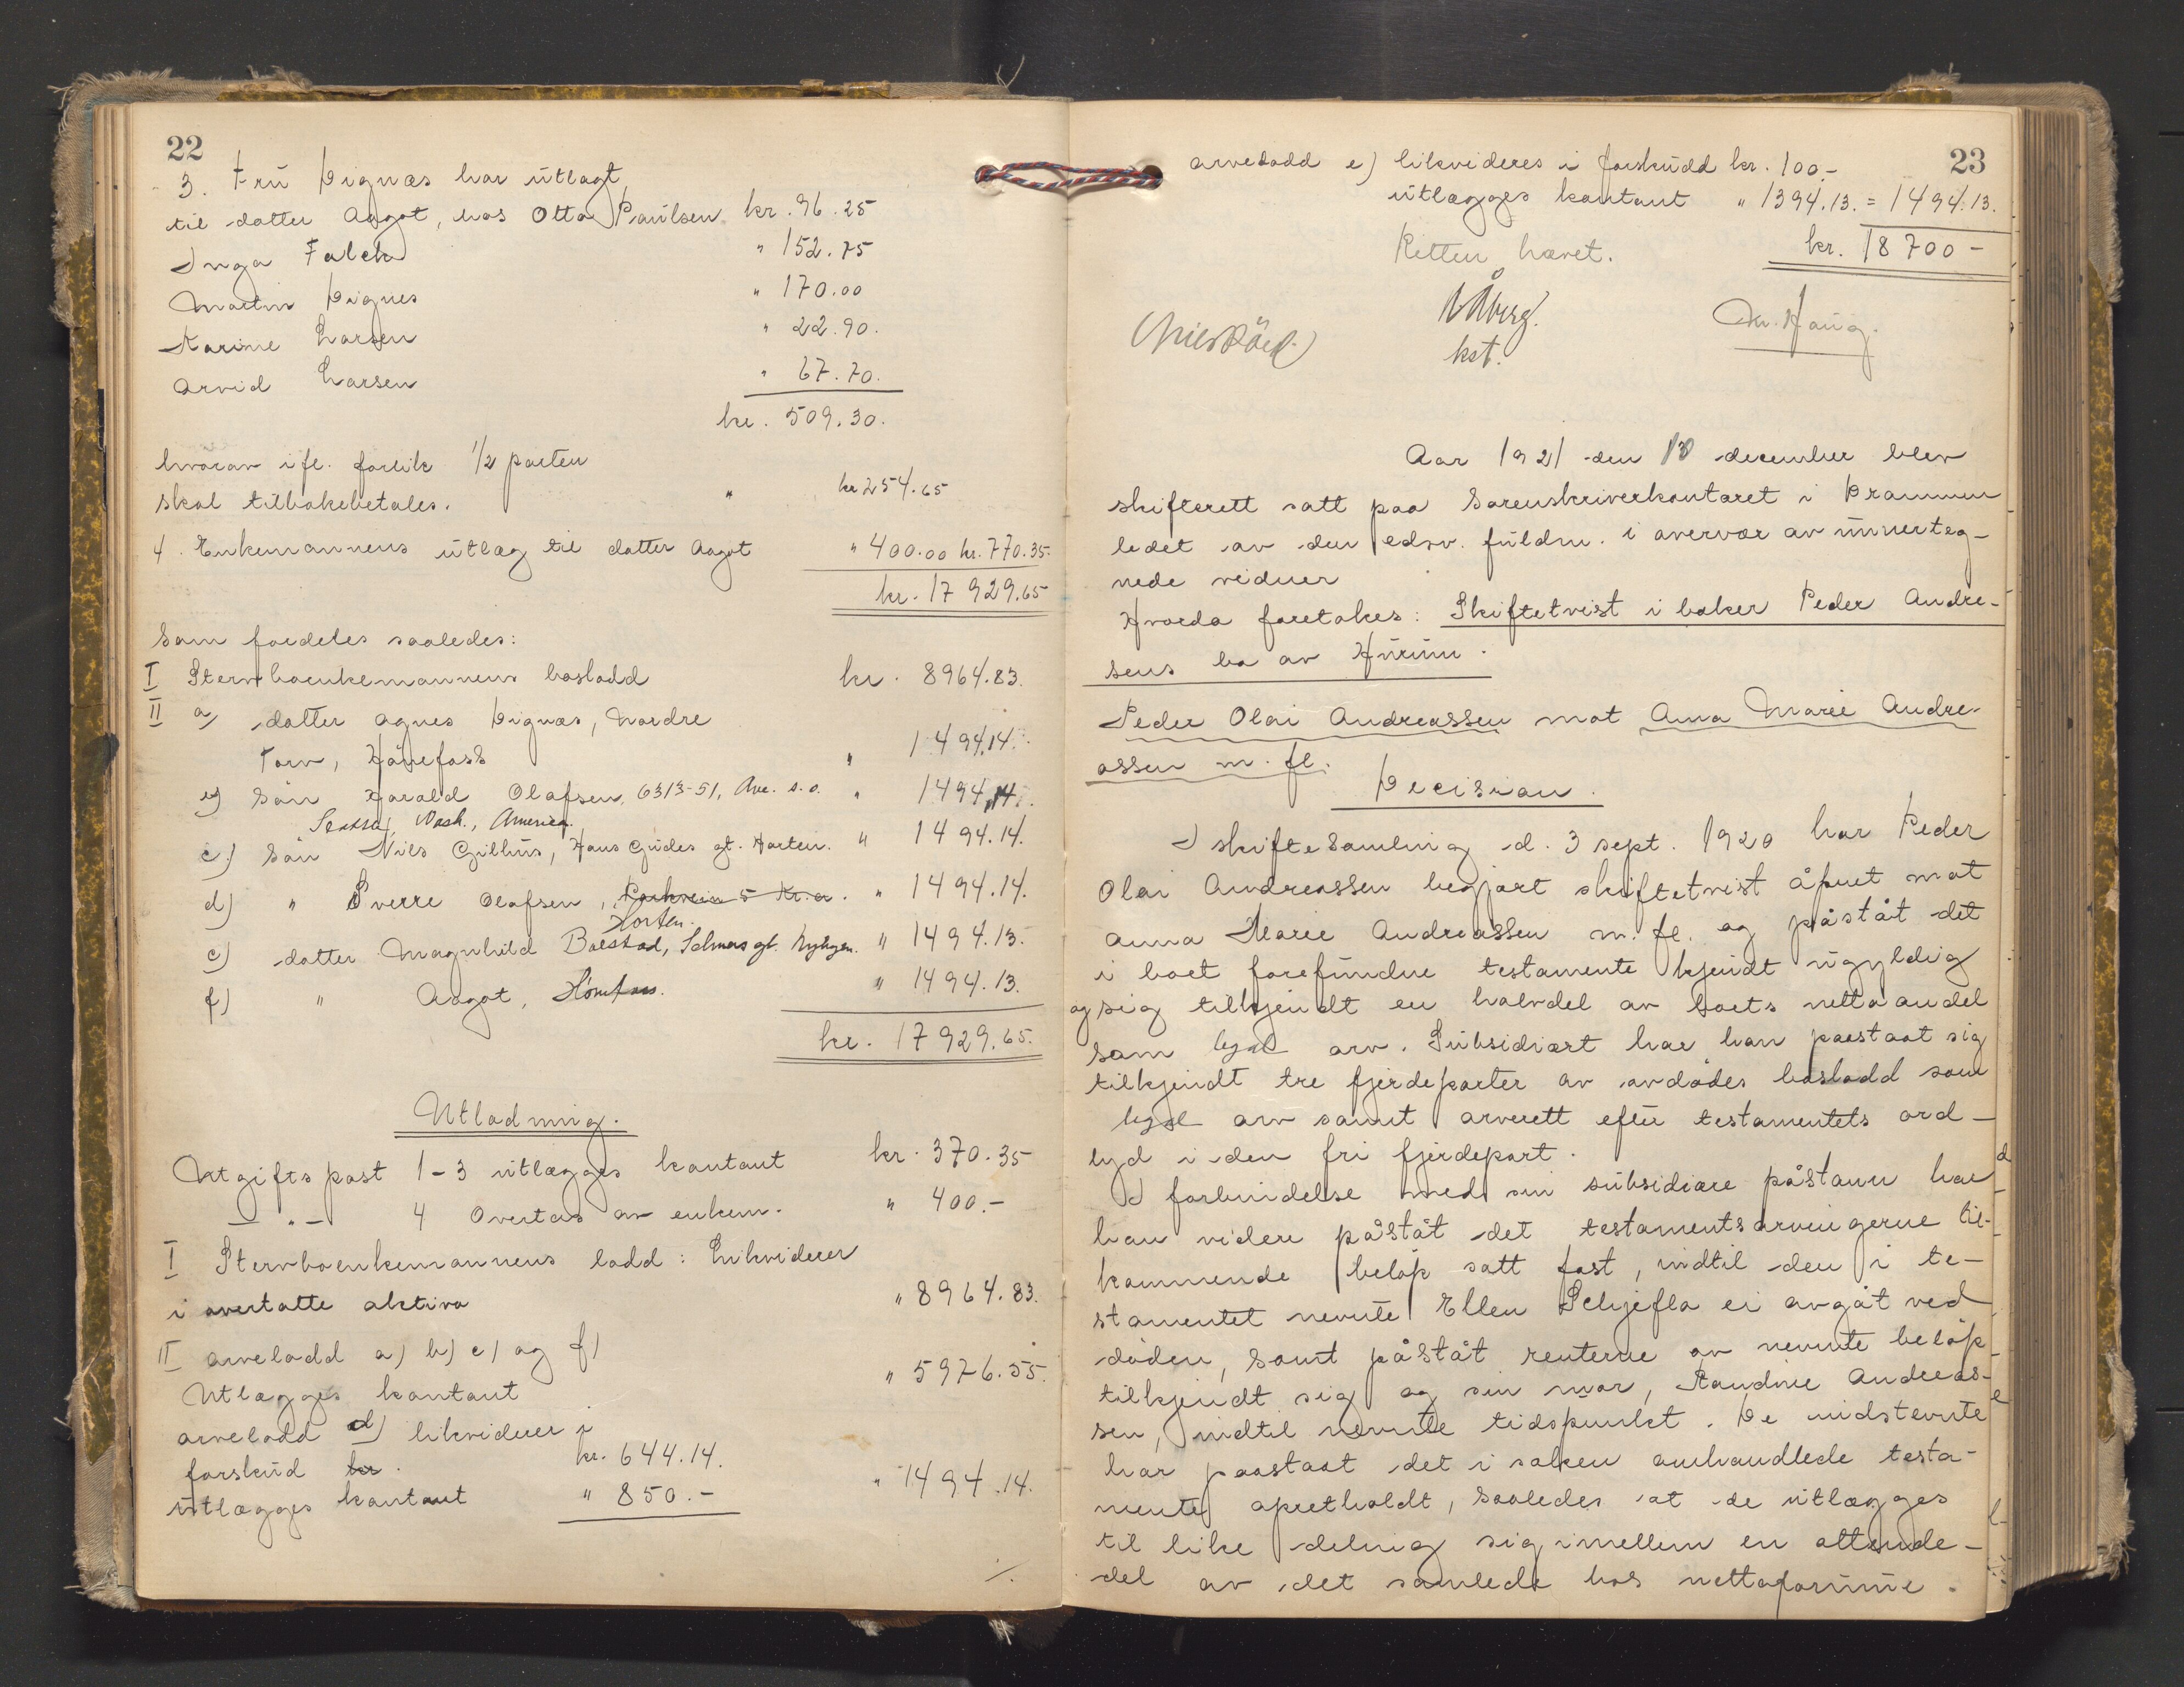 22
3. Fru Dignæs har utlagt
til datter Aagot, hos Otto Paulsen kr. 96.25
Inga Falck " 152.75
Martin Dignes " 170.00
Karine Larsen " 22.90.
Arvid Larsen " 67.70.
kr. 509.30.
hvorav ifl. forlik 1/2 parten
skal tilbakebetales. " kr 254.65
4. Enkemannens utlæg til datter Aagot " 400.00 kr. 770.35.
kr. 17 929.65
Som fordeles saaledes:
I Stervboenkemannens boslodd kr. 8964.83.
II a) datter Agnes Dignæs, Nordre
Torv, Hönefoss " 1494.14.
b) Sön Harald Olafsen, 6313-51, Ave. s.o. " 1494.14.
Wash., America.
c) Sön Nils Gilhus, Hans Gudes gt. Horten. " 1494.14.
d) " Sverre Olafsen, " 1494.14.
Horten.
e) datter Magnhild Bolstad, gt. " 1494.13.
f) " Aagot, Hönefoss. " 1494.13.
kr. 17 929.65.
Utlodning.
Utgiftspost 1-3 utlægges kontant kr. 370.35
— " — 4 Overtas av enkem. " 400.-
I Stervboenkemannens lodd: Likviderer
i overtatte aktiva " 8964.83.
II arvelodd a) b) c) og f)
Utlægges kontant " 5976.55.
arvelodd d) likviderer i
forskud kr. kr. 644.14.
utlægges kontant " 850.- " 1494.14.
./.
23
arvelodd e) likvideres i forskudd kr. 100.-
utlægges kontant " 1394.13. = 1494.13.
kr. 18 700 -
Retten hævet.
Åberg.
kst.
Haug.
Aar 1921 den 10 december blev
skifterett satt paa Sorenskriverkontoret i Drammen
ledet av den edsv. fuldm. i overvær av unnerteg-
nede vidner
Hvorda foretokes: Skiftetvist i baker Peder Andre-
sens bo av Hurum.
Peder Olai Andreassen mot Anna Marie Andre-
assen m. fl.
Decision.
I skiftesamling d. 3 sept. 1920 har Peder
Olai Andreassen begjært skiftetvist åpnet mot
Anna Marie Andreassen m. fl. og påståt det
i boet forefundne testamente kjendt ugyldig
og sig tilkjendt en halvdel av boets nettoandel
som legal arv. Subsidiært har han paastaat sig
tilkjendt tre fjerdeparter av avdödes boslodd som
legal arv samt arverett efter testamentets ord-
lyd i den fri fjerdepart.
I forbindelse med sin subsidiære påstann har
han videre påståt det testamentsarvingerne til-
kommende belöp satt fast, indtil den i te-
stamentet nevnte Ellen Schjefla er avgåt ved
döden, samt påståt renterne av nevnte belöp
tilkjendt sig og sin mor, Randine Andreas-
sen, indtil nevnte tidspunkt. De indstevnte
har paastaat det i saken omhandlede testa-
mente opretholdt, saaledes at de utlægges
til like deling sig imellem en ottende-
del av det samlede bos nettoformue.